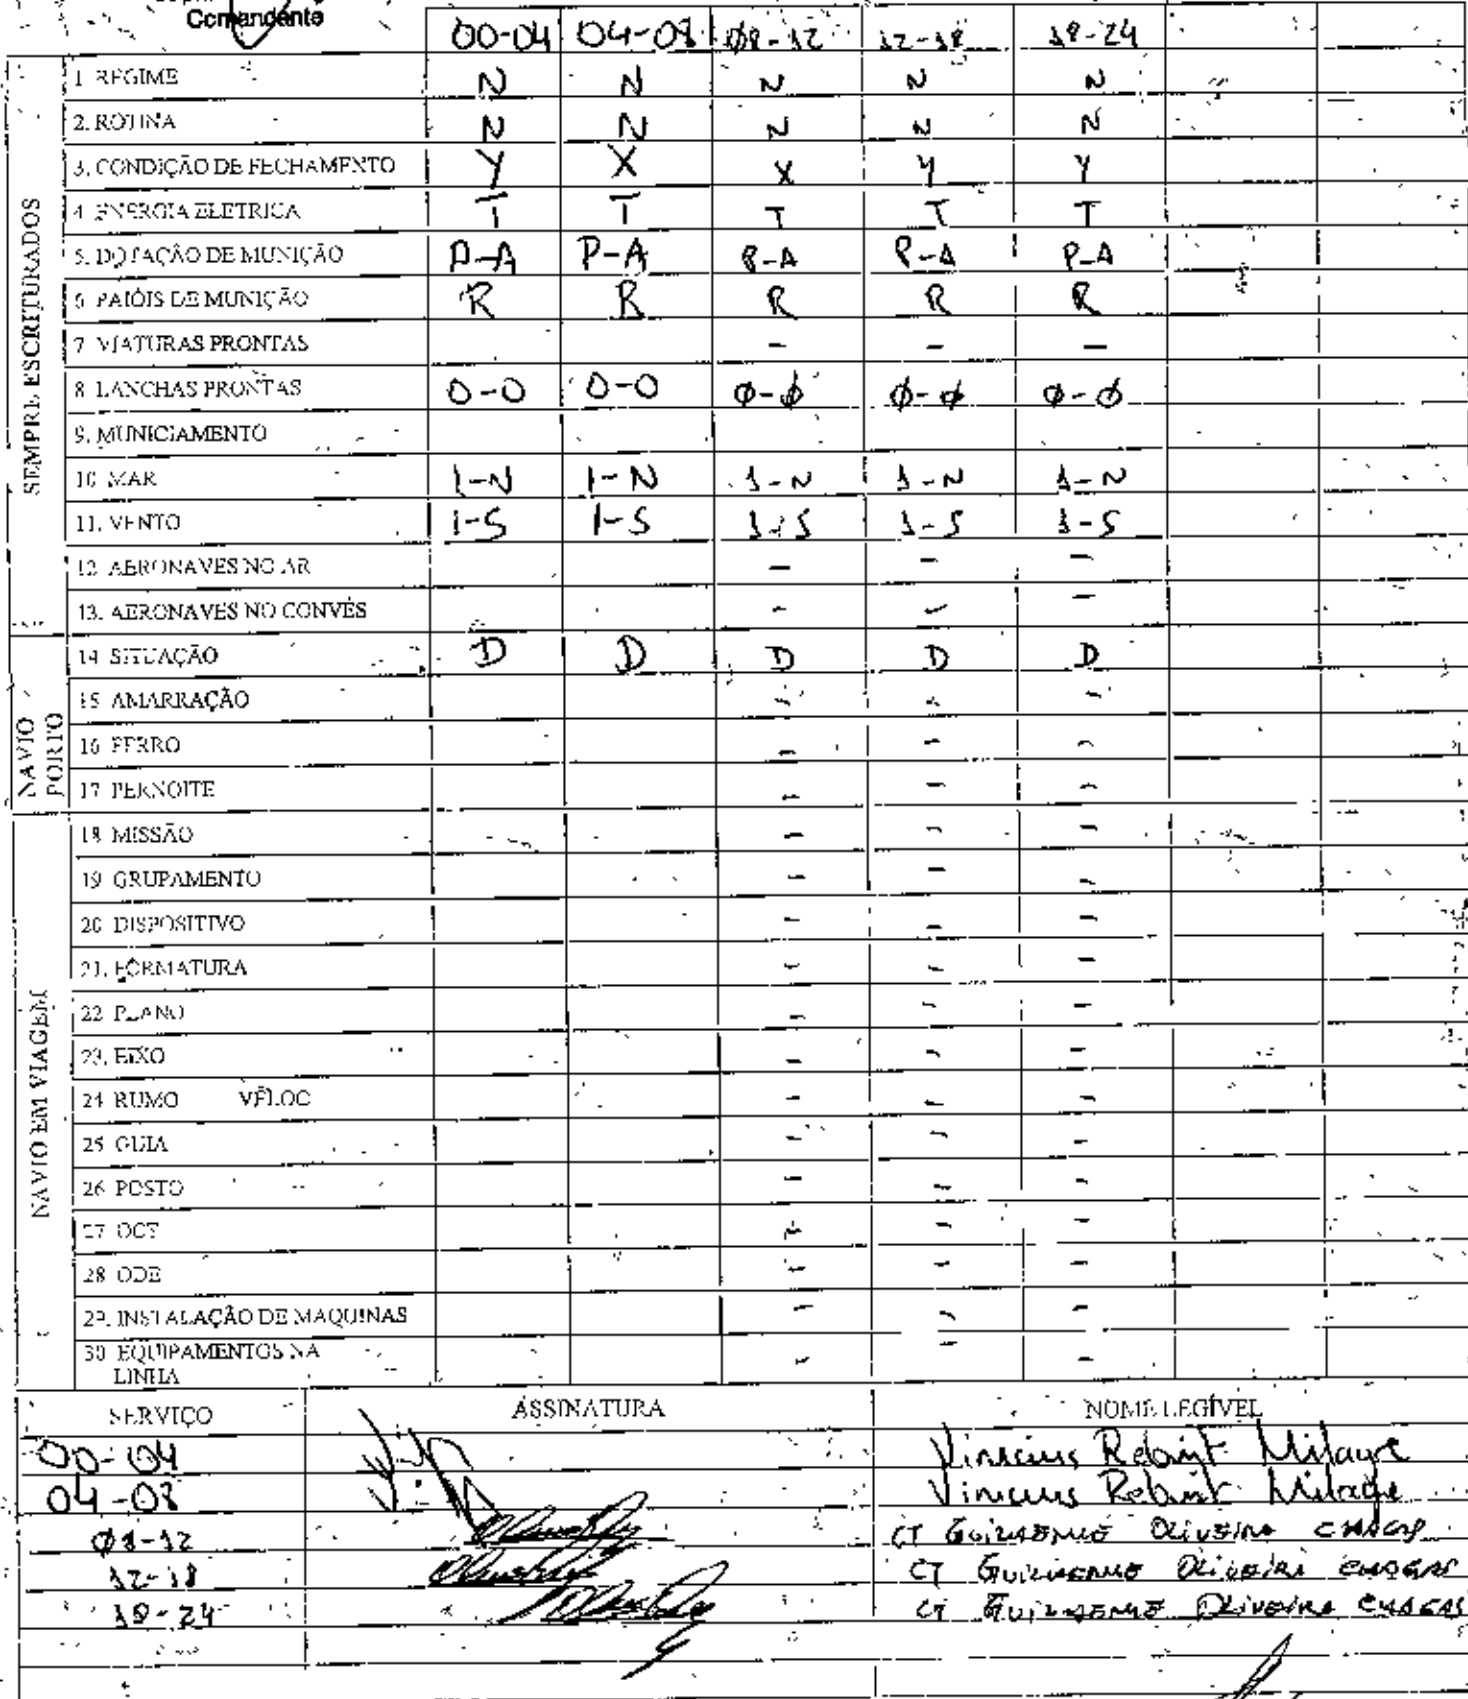 Comandante
00-04 04-08 08-12 12-18 18-24
SEMPRE ESCRITURADOS
1. REGIME N N N N N
2. ROTINA N N N N N
3. CONDIÇÃO DE FECHAMENTO Y X X Y Y
4. ENERGIA ELETRICA T T T T T
5. DOTAÇÃO DE MUNIÇÃO P-A P-A P-A P-A P-A
6. PAIÓIS DE MUNIÇÃO R R R R R
7. VIATURAS PRONTAS - - -
8. LANCHAS PRONTAS 0-0 0-0 Ø-Ø Ø-Ø Ø-Ø
9. MUNICIAMENTO
10. MAR 1-N 1-N 1-N 1-N 1-N
11. VENTO 1-S 1-S 1-S 1-S 1-S
12. AERONAVES NO AR - - -
13. AERONAVES NO CONVÉS - - -
NAVIO PORTO
14. SITUAÇÃO D D D D D
15. AMARRAÇÃO - - -
16. FERRO - - -
17. PERNOITE - - -
NAVIO EM VIAGEM
18. MISSÃO - - -
19. GRUPAMENTO - - -
20. DISPOSITIVO - - -
21. FORMATURA - - -
22. PLANO - - -
23. EIXO - - -
24. RUMO VELOC - - -
25. GUIA - - -
26. POSTO - - -
27. OCT - - -
28. ODE - - -
29. INSTALAÇÃO DE MAQUINAS - - -
30. EQUIPAMENTOS NA LINHA - - -
SERVIÇO ASSINATURA NOME LEGÍVEL
00-04 Vinicius Milagre
04-08 Vinicius Milagre
Ø8-12 CT GUILHERME OLIVEIRA CHAGAS
12-18 CT GUILHERME OLIVEIRA CHAGAS
18-24 CT GUILHERME OLIVEIRA CHAGAS